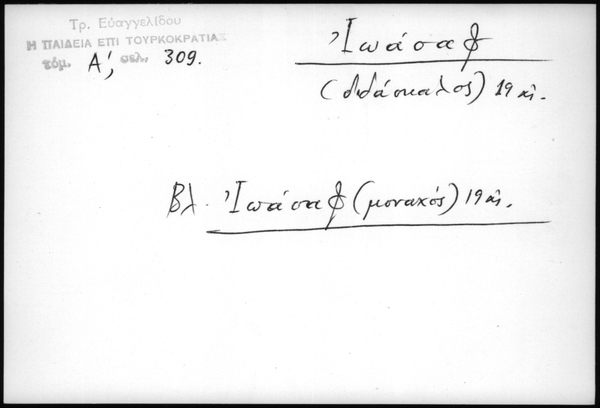 Τρ. Εὐαγγελίδου
Η ΠΑΙΔΕΙΑ ΕΠΙ ΤΟΥΡΚΟΚΡΑΤΙΑΣ
τόμ. Α', σελ. 309.
Ἰωάσαφ
(διδάσκαλος) 19 αἰ.
Βλ. Ἰωάσαφ (μοναχός) 19 αἰ.